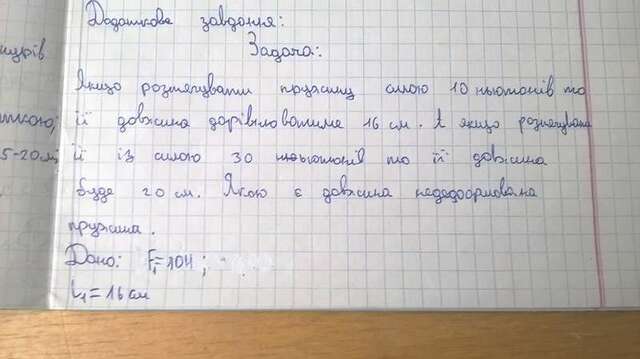 Додаткова завдання:
Задача:
Якщо розтягувати пружину силою 10 ньютонів то
її довжина дорівнюватиме 16 см. А якщо розтягувати
її із силою 30 ньютонів то її довжина
буде 20 см. Якою є довжина недеформована
пружина.
Дано: F₁=10Н;
L₁=16 см
5-20